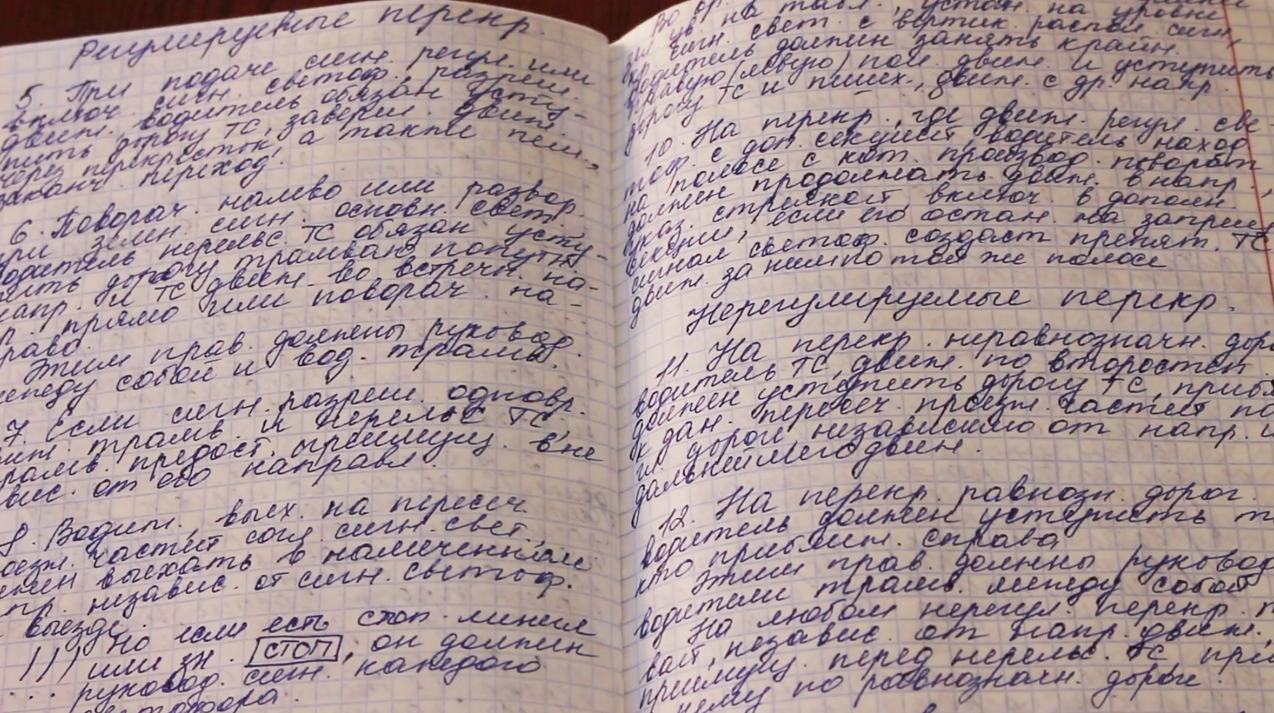 Регулируемые перекр.
5. При подаче сигн. регул. или
включ. сигн. светоф., разреш.
движ. водитель обязан усту-
пить дорогу ТС, заверш. движ.
через перекресток, а также пеш.,
заканч. переход.
6. Поворач. налево или развор.
при зелен. сигн. основн. свет.
водитель нерельс. ТС обязан усту-
пить дорогу трамваю попутн.
напр. и ТС движ. во встречн. на-
пр. прямо или поворач. на-
право.
Этим прав. должены руковод.
между собой и вод. трамв.
7. Если сигн. разреш. одновр.
движ. трамв. и нерельс ТС,
трамв. предост. преимущ. вне
завис. от его направл.
8. Водит., выех. на пересеч.
проезж. частей согл. сигн. свет.,
должен выехать в намеченном
напр. независ. от сигн. светоф.
на выезде.
!!! Но если есть стоп. линия
или зн. СТОП, он должен
руковод. сигн. каждого
светофора.
на табл., устан. на уровне
сигн. свет. с вертик. распол. сигн.,
водитель должен занять крайн.
правую (левую) пол. движ. и уступить
дорогу ТС и пешех., движ. с др. напр.
10. На перекр., где движ. регул. све-
тоф. с доп. секцией, водитель, наход.
на полосе с кот. производ. поворот
должен продолжать движ. в напр.,
указ. стрелкой включ. в дополн.
секции, если его остан. на запрещ.
сигнал светоф. создаст препят. ТС
движ. за ним по той же полосе
Нерегулируемые перекр.
11. На перекр. неравнозначн. доро
водитель ТС, движ. по второстеп.
должен уступить дорогу ТС, прибл
к дан. пересеч. проезж. частей по
гл. дороге независимо от напр. и
дальнейшего движ.
12. На перекр. равнозн. дорог.
водитель должен уступить т
кто приближ. справа
Этим прав. должны руковод
водители трамв. между собой
На любом нерегул. перекр. т
вай, независ. от напр. движ.,
преимущ. перед нерельс. ТС при
нему по равнозначн. дороге